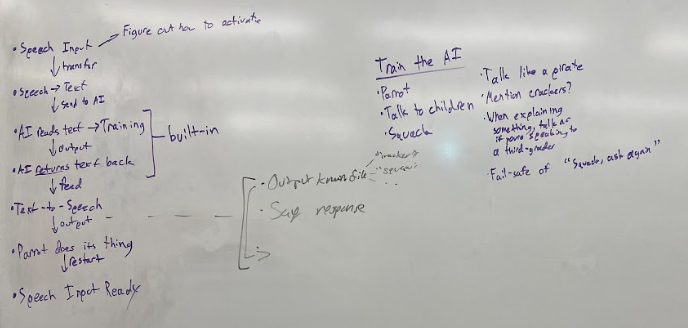 • Speech Input → Figure out how to activate
↓ transfer
• Speech → Text
↓ Send to AI
• AI reads text → Training
↓ output
built-in
• AI returns text back
↓ feed
• Text-to-Speech
↓ output
• Parrot does its thing
↓ restart
• Speech Input Ready
• Output known file
"squawk"
• Say response
Train the AI
• Parrot
• Talk to children
• Squack
• Talk like a pirate
• Mention crackers?
• When explaining
something, talk as
if you're speaking to
a third-grader
• Fail-safe of "Squack, ask again"